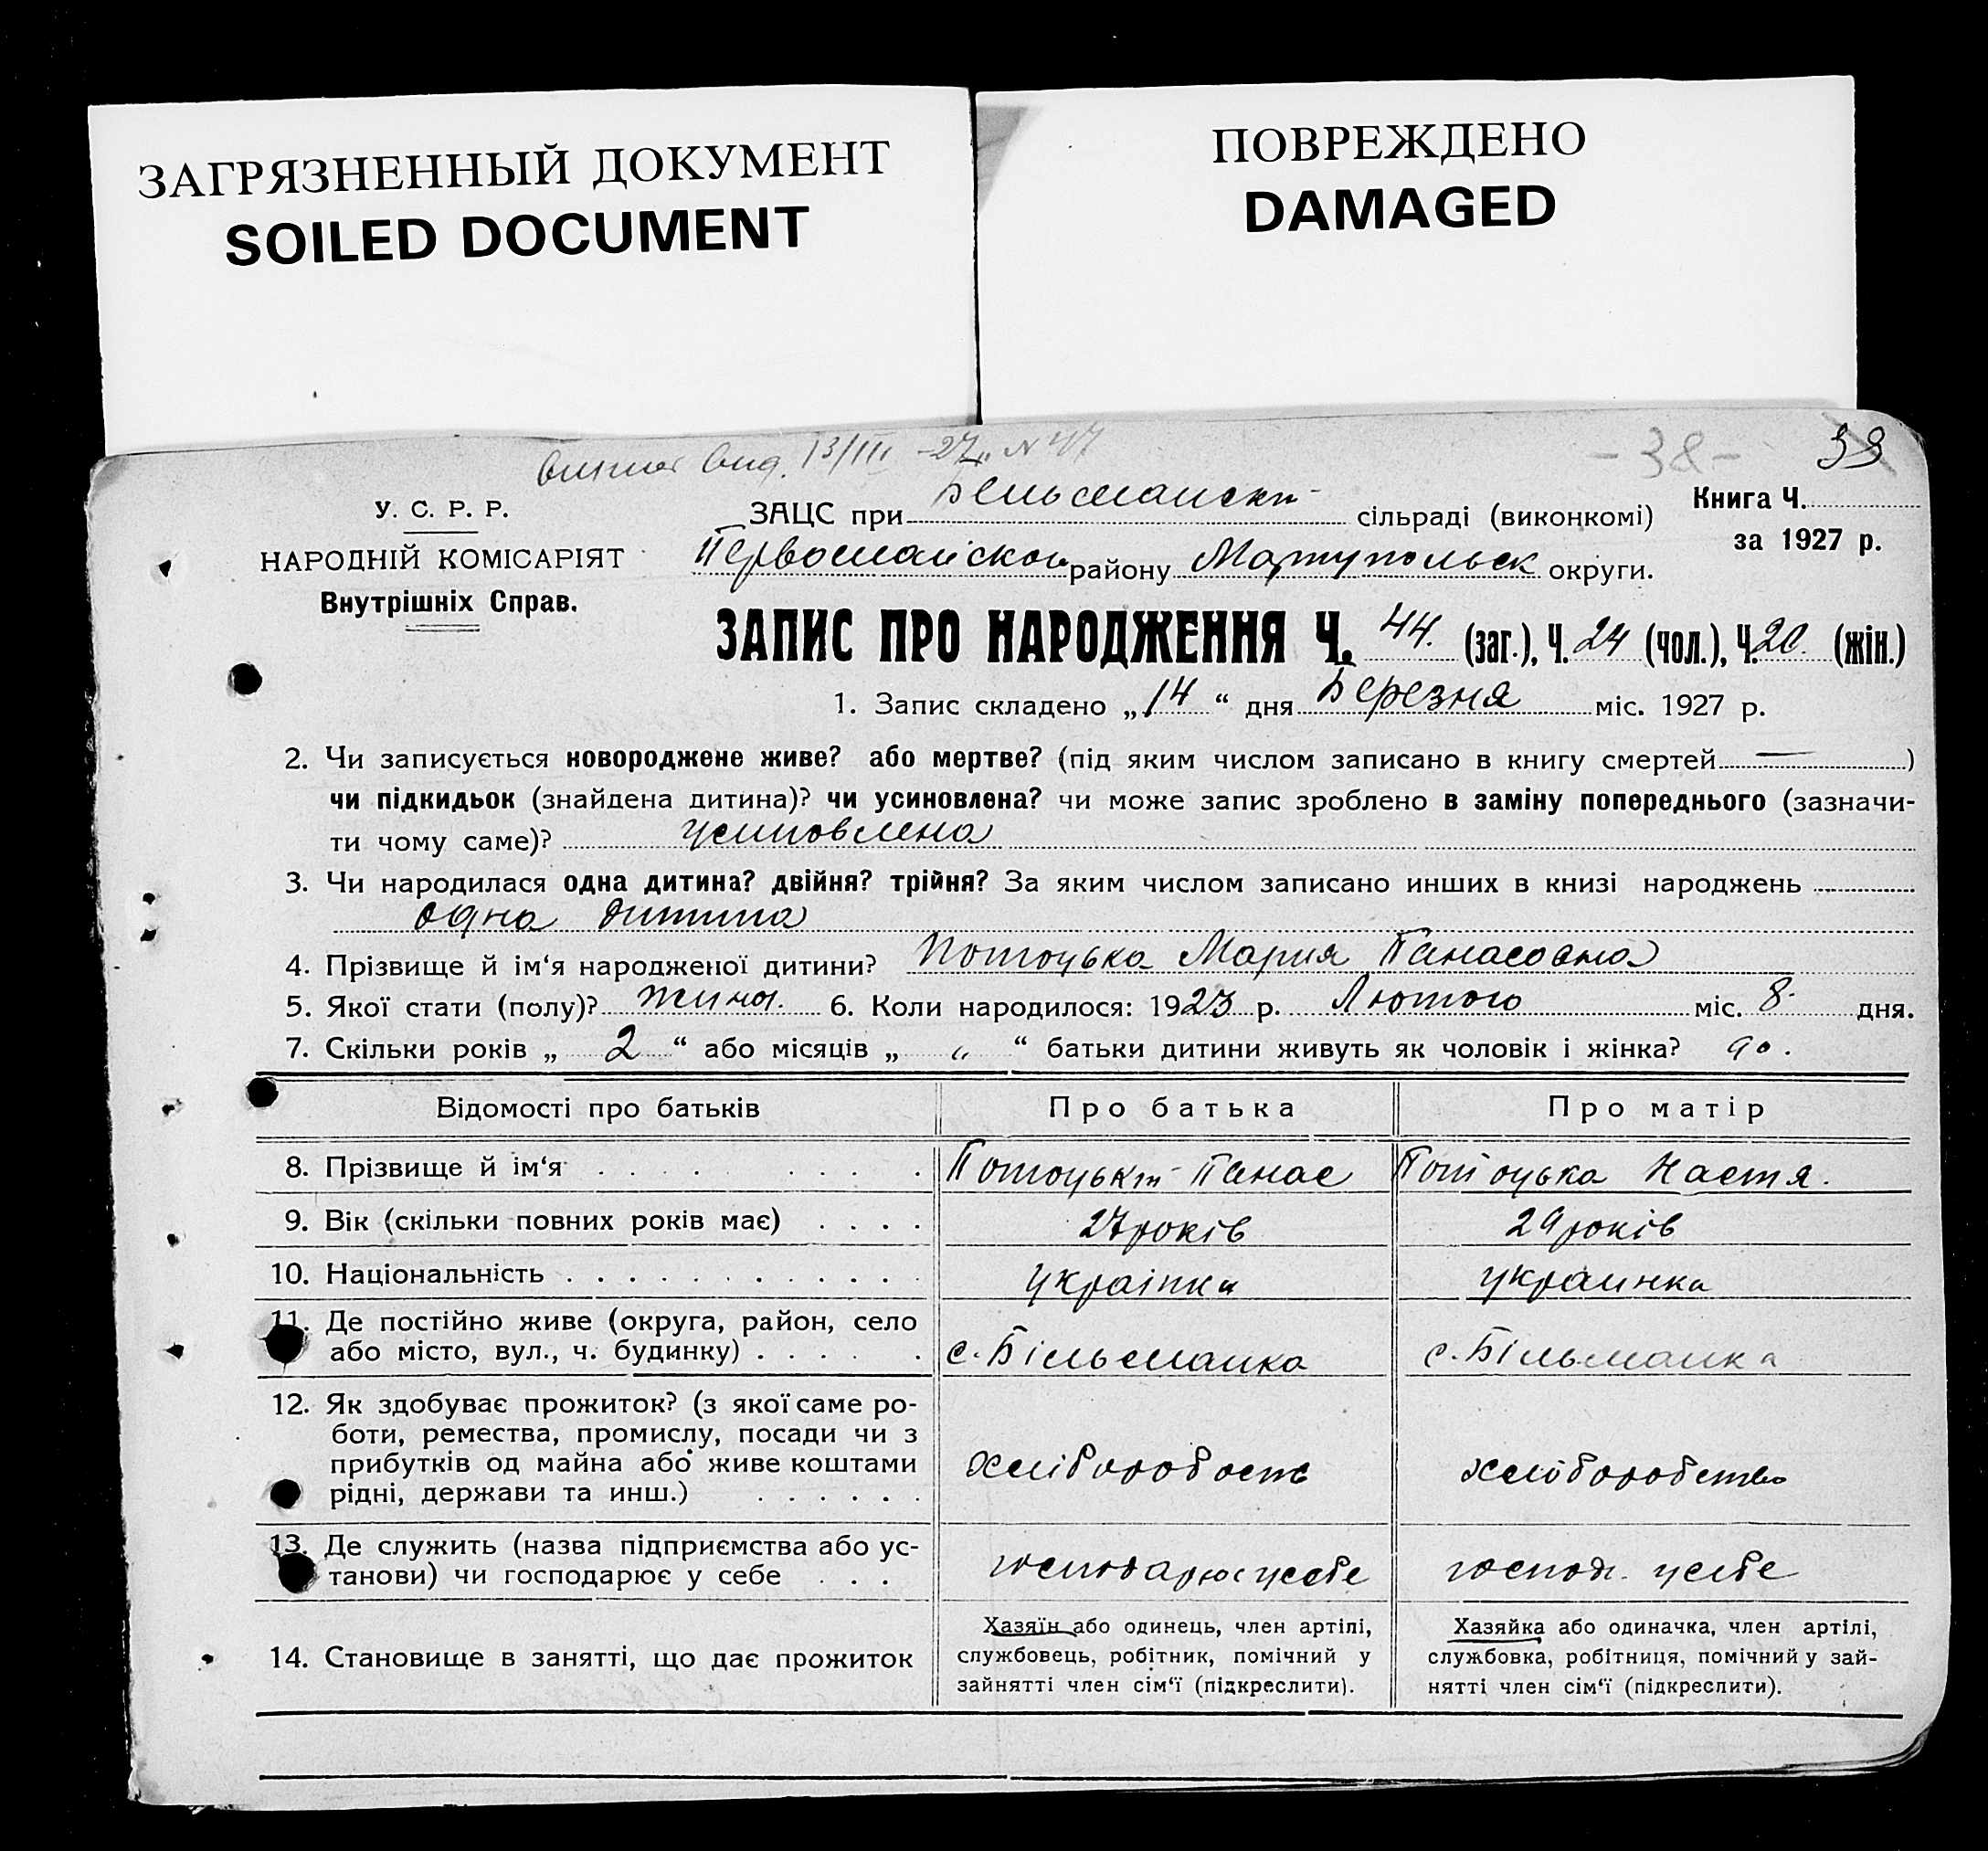 ЗАГРЯЗНЕННЫЙ ДОКУМЕНТ
SOILED DOCUMENT
ПОВРЕЖДЕНО
DAMAGED
13/III -27 N 47
- 38 - 38
У. С. Р. Р.
НАРОДНІЙ КОМІСАРІЯТ
Внутрішніх Справ.
ЗАЦС при Бельманскт сільраді (виконкомі)
Книга Ч.
за 1927 р.
Первомайском району Мариупольск округи.
ЗАПИС ПРО НАРОДЖЕННЯ Ч. 44. (заг.), Ч. 24 (чол.), Ч. 20. (жін.)
1. Запис складено „14“ дня Березня міс. 1927 р.
2. Чи записується новороджене живе? або мертве? (під яким числом записано в книгу смертей —)
чи підкидьок (знайдена дитина)? чи усиновлена? чи може запис зроблено в заміну попереднього (зазначи-
ти чому саме)? усиновлена
3. Чи народилася одна дитина? двійня? трійня? За яким числом записано инших в книзі народжень
одна дитина
4. Прізвище й ім‘я народженої дитини? Потоцька Мария Панасовна
5. Якої стати (полу)? жиноч. 6. Коли народилося: 1923 р. Лютого міс. 8 дня.
7. Скільки років „ 2 “ або місяців „ “ батьки дитини живуть як чоловік і жінка?
Відомості про батьків
Про батька
Про матір
8. Прізвище й ім‘я Потоцькт Панас Потоцька Настя.
9. Вік (скільки повних років має) 27 років 29 років
10. Національність українка украинка
11. Де постійно живе (округа, район, село
або місто, вул., ч. будинку) с. Більманка с. Більманка
12. Як здобуває прожиток? (з якої саме ро-
боти, ремества, промислу, посади чи з
прибутків од майна або живе коштами
рідні, держави та инш.) хліборобость хліборобство
13. Де служить (назва підприємства або ус-
танови) чи господарює у себе господарює усебе господ. усебе
14. Становище в занятті, що дає прожиток
Хазяїн або одинець, член артілі,
службовець, робітник, помічний у
зайнятті член сім‘ї (підкреслити).
Хазяйка або одиначка, член артілі,
службовка, робітниця, помічний у зай-
нятті член сім‘ї (підкреслити).